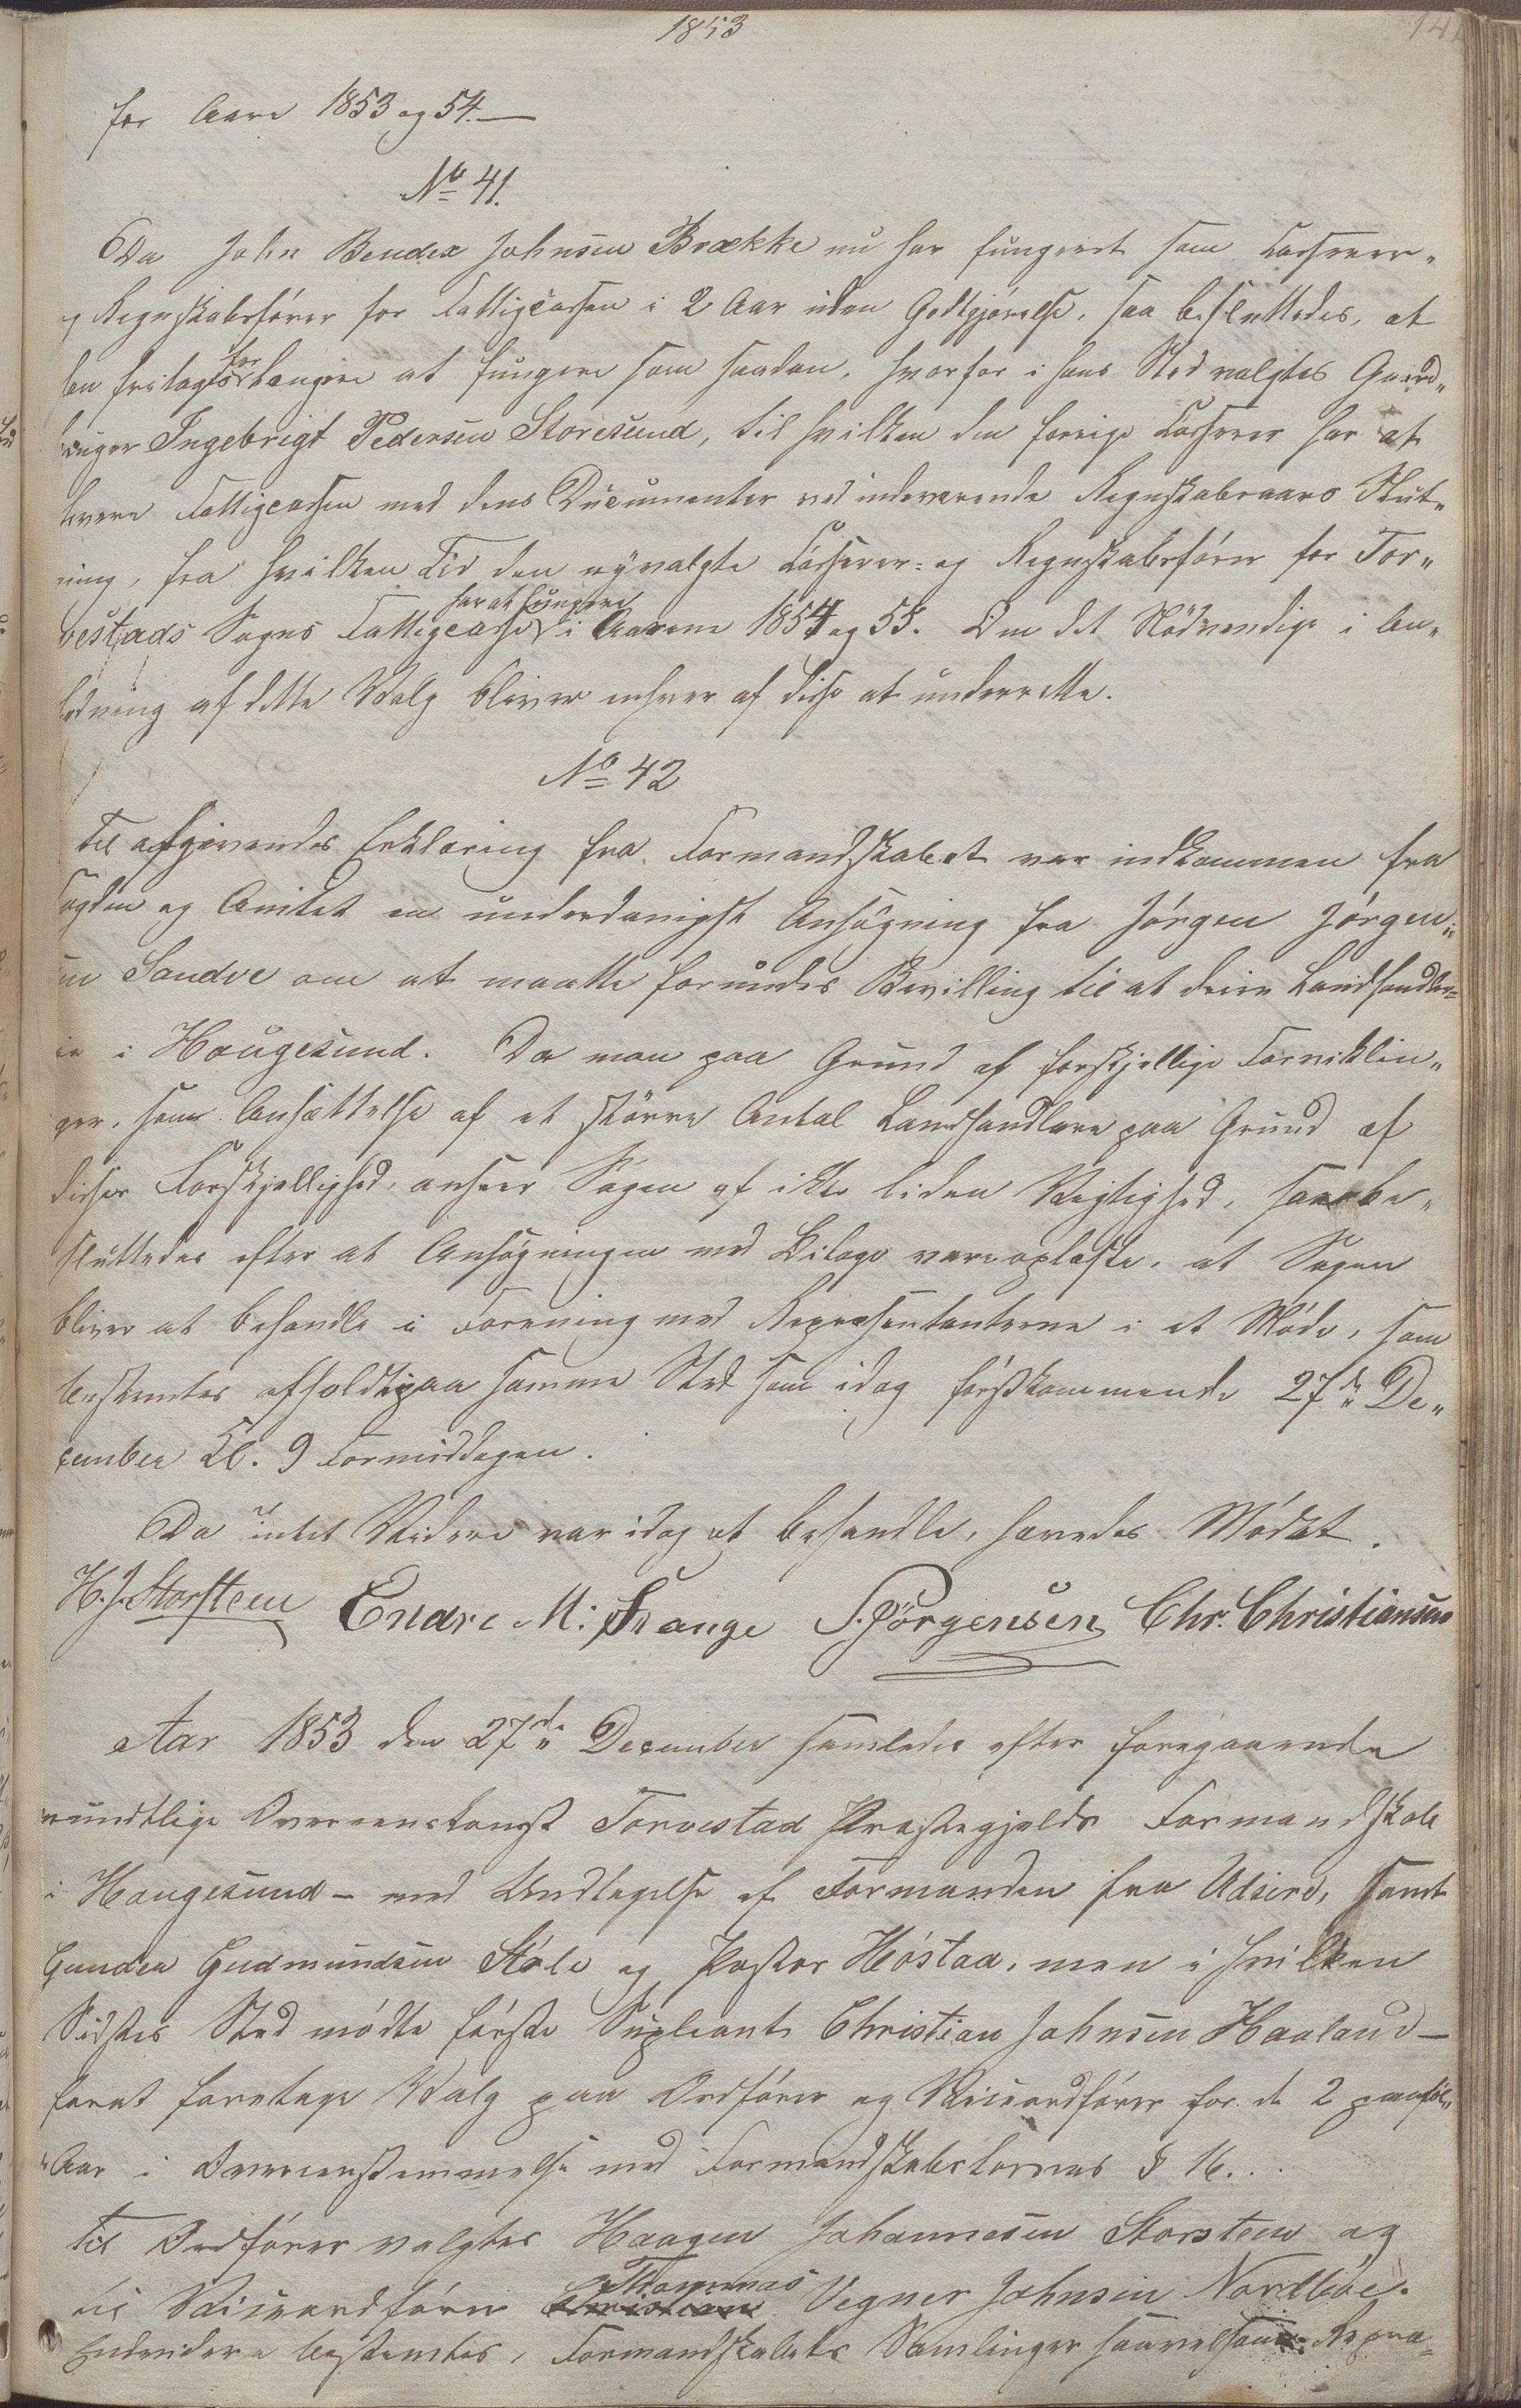 1853
141
for Aare 1853 og 54.—
No 41.
Da John Bendex Johnsen Brække nu har fungeret som Casserer-
og Regnskabsfører for Fattigcassen i 2 Aar uden Godtgjørelse, saa besluttedes, at
han fritages for længere at fungere som saadan, hvorfor i hans Sted valgtes Gaard„
bruger Ingebrigt Pedersen Storesund, til hvilken den forrige Casserer har at
levere Fattigcassen med dens Documenter ved indeværende Regnskabsaars Slut„
ning, fra hvilken Tid den nyvalgte Casserer- og Regnskabsfører for Tor„
vestads Sogns Fattigcasse har at fungere i Aarene 1854 og 55. Om det Nødvendige i An„
ledning af dette Valg bliver enhver af disse at underrette.
No 42
Til afgivendes Erklæring fra Formandskabet var indkommen fra
Fogden og Amtet en underdanigst Ansøgning fra Jørgen Jørgen„
sen Sandve om at maatte forundes Bevilling til at drive Landhandler„
ie i Haugesund. Da man paa Grund af forskjellige Forviklin„
ger, som Ansættelse af et større Antal Landhandlere paa Grund af
disses Forskjellighed, anseer Sagen af ikke liden Vigtighed, saa be„
sluttedes efter at Ansøgningen med Bilage vare oplæste, at Sagen
bliver at behandle i Forening med Repræsentanterne i et Møde, som
bestemtes afholdt paa samme Sted som idag førstkommende 27de De„
cember Kl. 9 Formiddagen.
Da intet Videre var idag at behandle, hævedes Mødet.
H. J. Storsteen Endre M. Svange S. Jørgensen Chr. Christiansen
Aar 1853 den 27de December samledes efter foregaaende
mundtlige Overeenskomst Torvestad Præstegjelds Formandskab
i Haugesund – med Undtagelse af Formanden fra Udsire, samt
Gunder Gudmundsen Støle og Pastor Høstad, men i hvilken
Sidstes Sted mødte første Supleant Christian Johnsen Haaland –
forat foretage Valg paa Ordfører og Viceordfører for de 2 paaføl„
Aar i Overeenstemmelse med Formandskabslovens § 16...
Til Ordfører valgtes Haagen Johannesen Storsteen og
til Viceordfører Thommas Vegner Johnsen Nordbøe.
Endvidere bestemtes, Formandskabets Samlinger saavelsom Repræ„